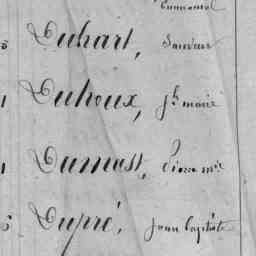 Emmanuel
Duhart, Sauveur
Duhoux, Jh marie
Dumast, Pierre mie
Dupré, Jean Baptiste